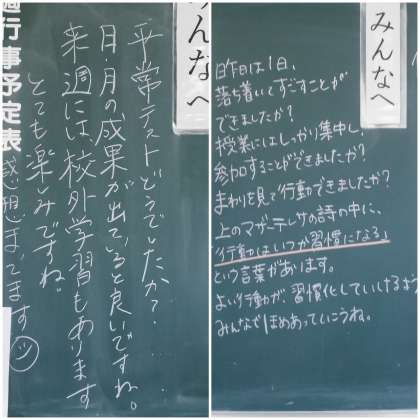 みんなへ
平常テストどうでしたか?
日・月の成果が出ていると良いですね。
来週には、校外学習もあります
とても楽しみですね。
感想まってます
行事予定表
みんなへ
昨日は1日、
落ち着いてすごすことが
できましたか?
授業にはしっかり集中し、
参加することができましたか?
まわりを見て行動できましたか?
上のマザーテレサの詩の中に、
「行動はいつか習慣になる」
という言葉があります。
よい行動が、習慣化していけるよう
みんなでほめあっていこうね。